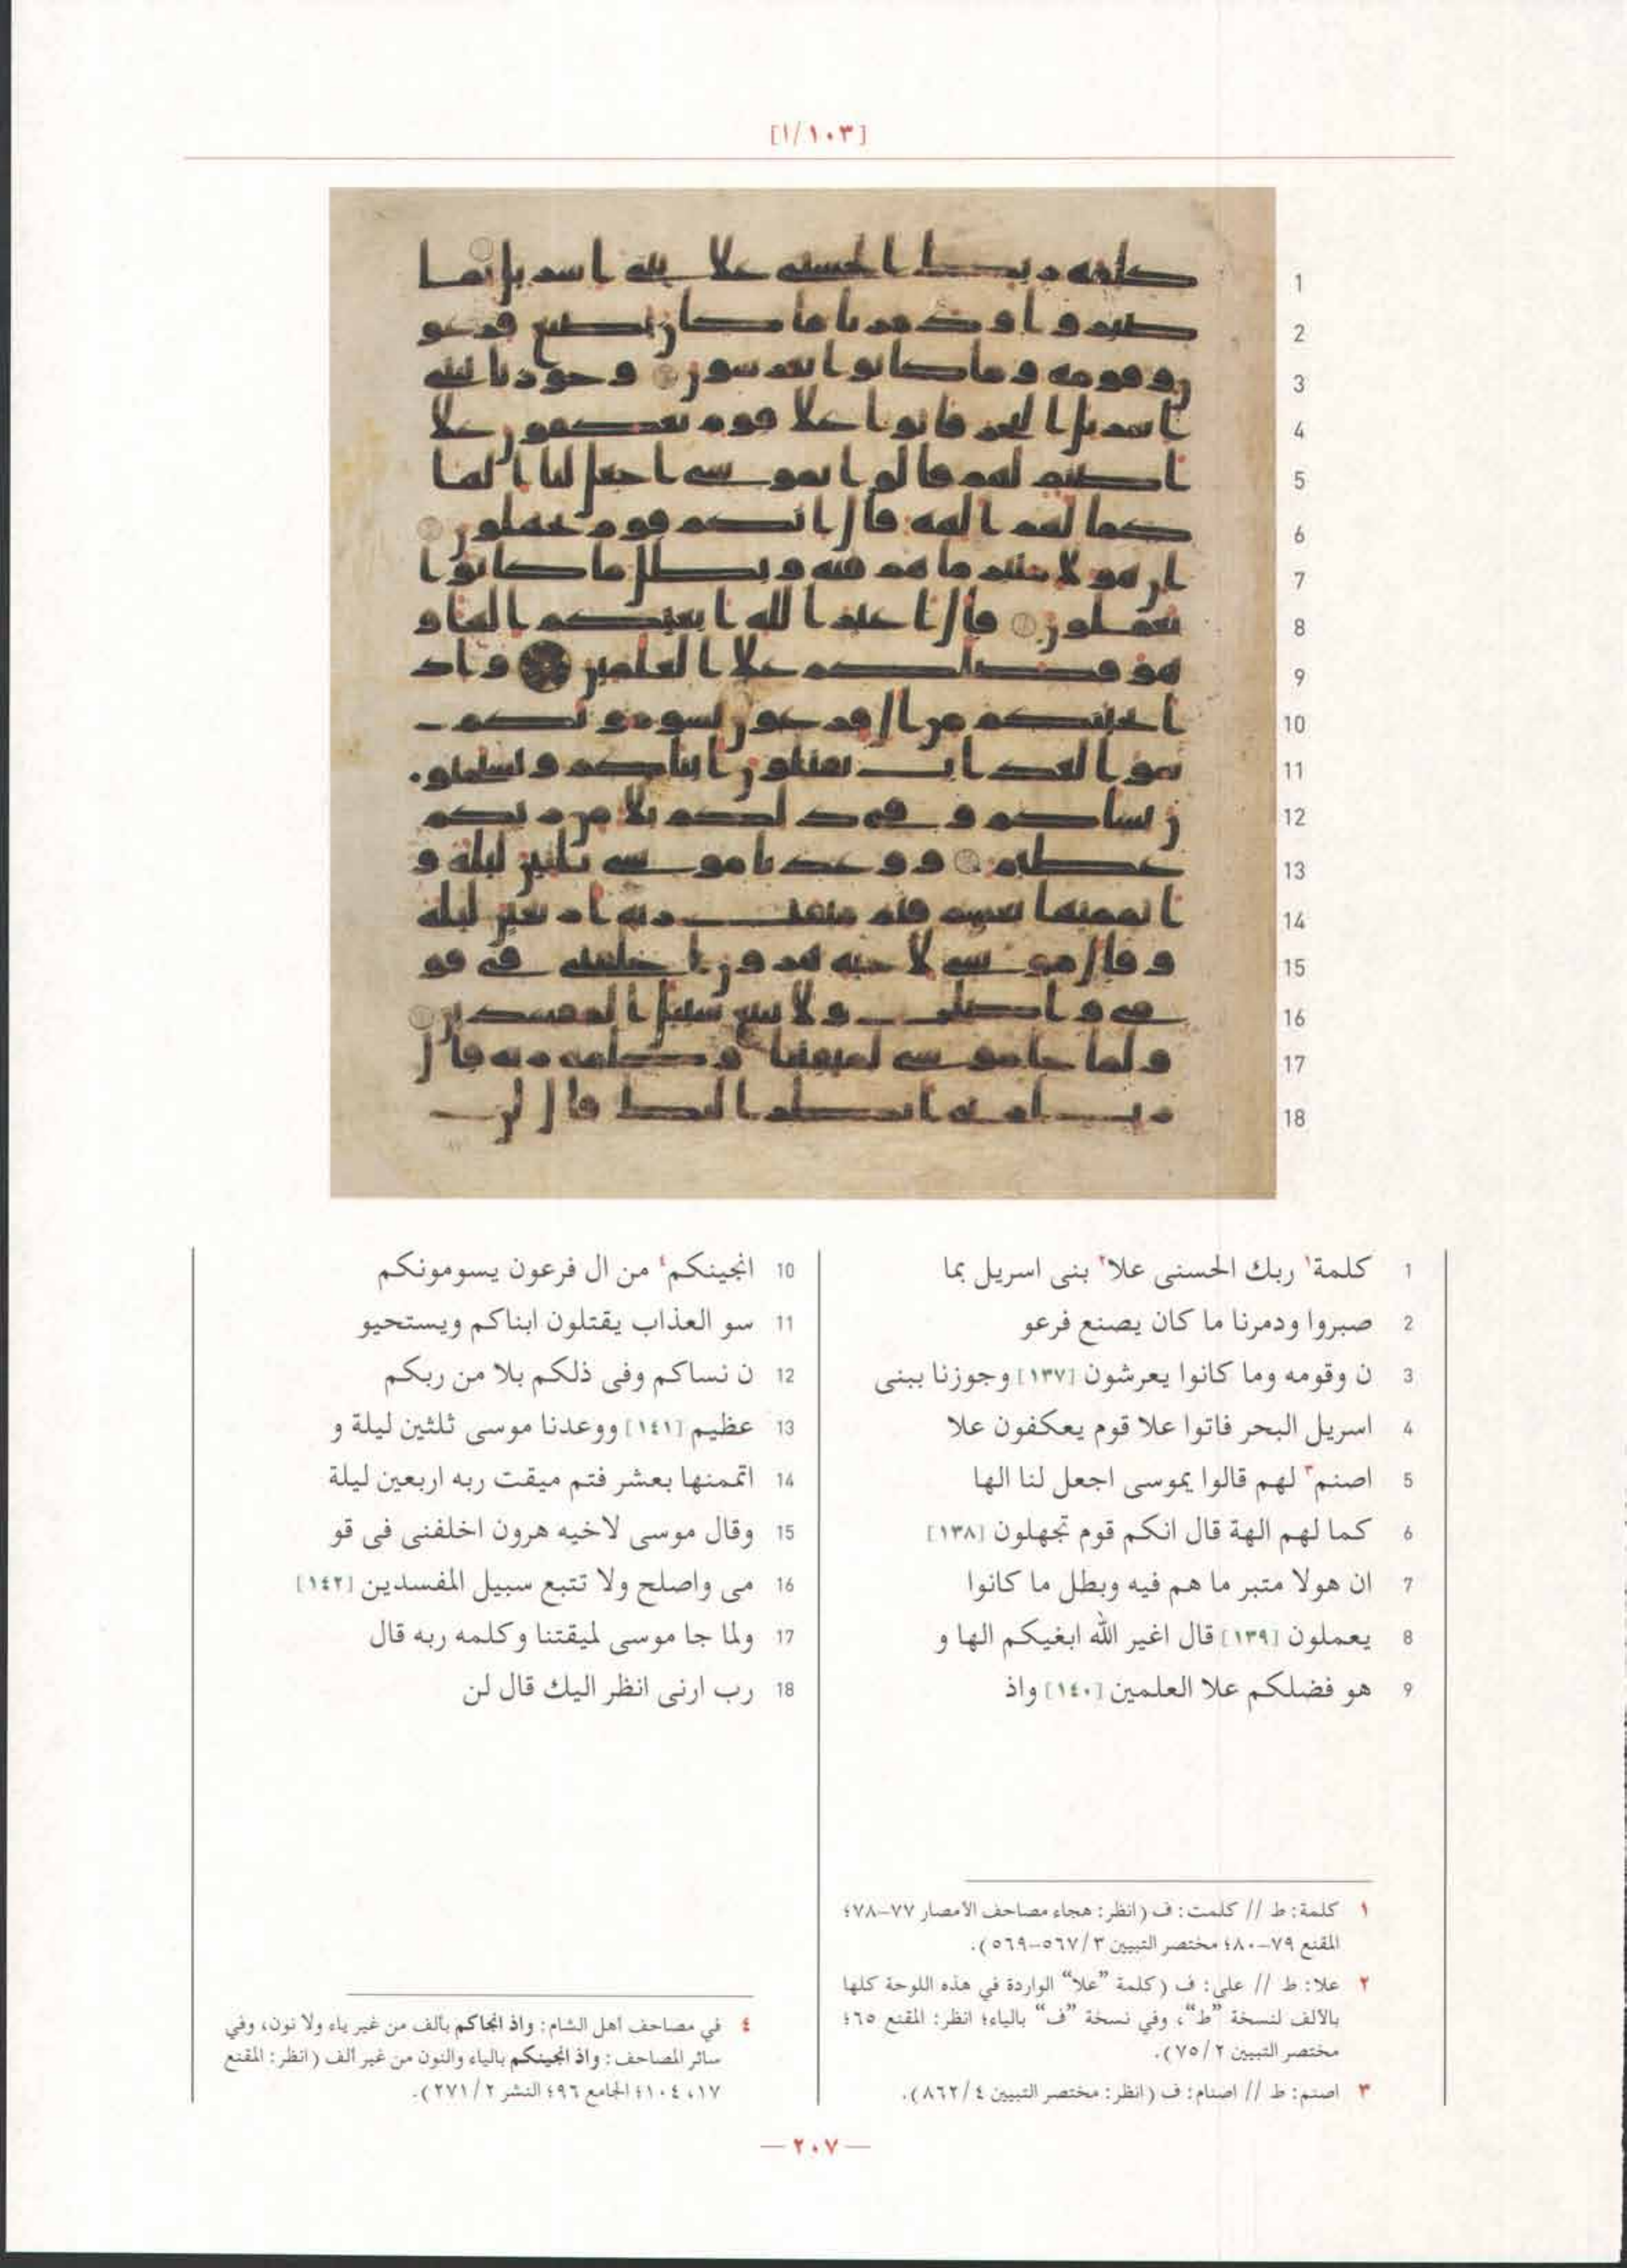 [١٠٣/ا]
1 كلمة١ ربك الحسنى علا٢ بنى اسريل بما
2 صبروا ودمرنا ما كان يصنع فرعو
3 ن وقومه وما كانوا يعرشون [١٣٧] وجوزنا ببنى
4 اسريل البحر فاتوا علا قوم يعكفون علا
5 اصنم٣ لهم قالوا يموسى اجعل لنا الها
6 كما لهم الهة قال انكم قوم تجهلون [١٣٨]
7 ان هولا متبر ما هم فيه وبطل ما كانوا
8 يعملون [١٣٩] قال اغير الله ابغيكم الها و
9 هو فضلكم علا العلمين [١٤٠] واذ
10 انجينكم٤ من ال فرعون يسومونكم
11 سو العذاب يقتلون ابناكم ويستحيو
12 ن نساكم وفى ذلكم بلا من ربكم
13 عظيم [١٤١] ووعدنا موسى ثلثين ليلة و
14 اتممنها بعشر فتم ميقت ربه اربعين ليلة
15 وقال موسى لاخيه هرون اخلفنى فى قو
16 مى واصلح ولا تتبع سبيل المفسدين [١٤٢]
17 ولما جا موسى لميقتنا وكلمه ربه قال
18 رب ارنى انظر اليك قال لن
١ كلمة: ط // كلمت: ف (انظر: هجاء مصاحف الأمصار ٧٧-٧٨؛
المقنع ٧٩-٨٠؛ مختصر التبيين ٣/٥٦٧-٥٦٩).
٢ علا: ط // على: ف (كلمة "علا" الواردة في هذه اللوحة كلها
بالألف لنسخة "ط"، وفي نسخة "ف" بالياء؛ انظر: المقنع ٦٥؛
مختصر التبيين ٢/٧٥).
٣ اصنم: ط // اصنام: ف (انظر: مختصر التبيين ٤/٨٦٢).
٤ في مصاحف أهل الشام: واذ انجاكم بألف من غير ياء ولا نون، وفي
سائر المصاحف: واذ انجينكم بالياء والنون من غير ألف (انظر: المقنع
١٧، ١٠٤؛ الجامع ٩٦؛ النشر ٢/٢٧١).
— ٢٠٧ —